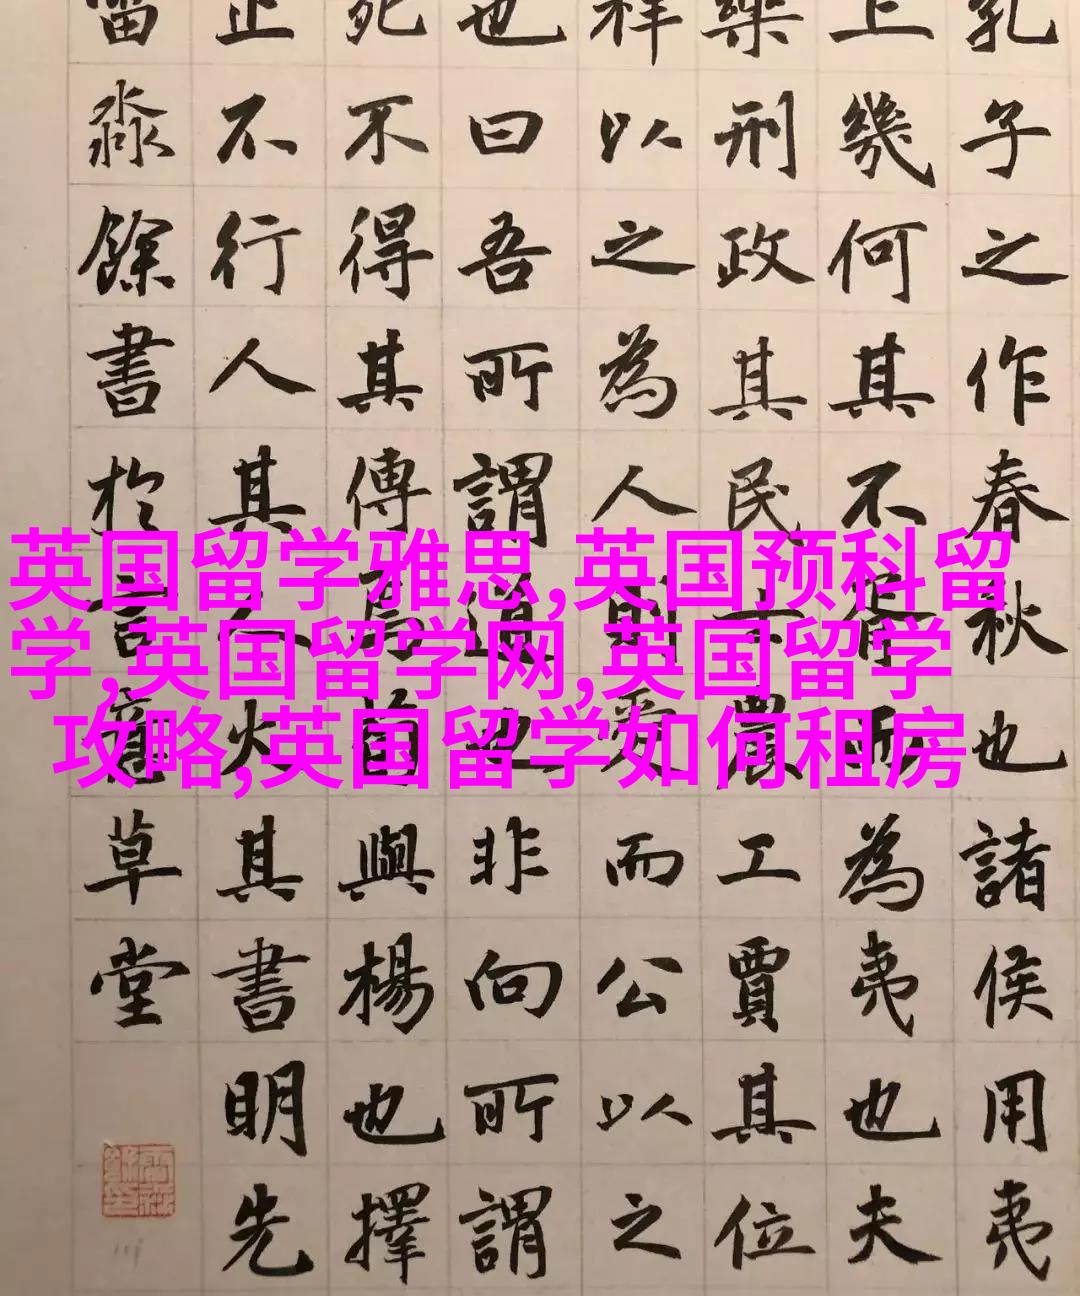 孔子之作春秋也諸侯用夷
上幾何其不胥而為夷也夫
樂刑政其民士農工賈其位
祥以之為人則愛而公以之
也曰吾所謂道也非向所謂
死不得其傳焉荀與楊也擇
止不行人其人火其書明先
淼餘書於言草堂
英国留学雅思,英国预科留
学,英国留学网,英国留学
攻略,英国留学如何租房